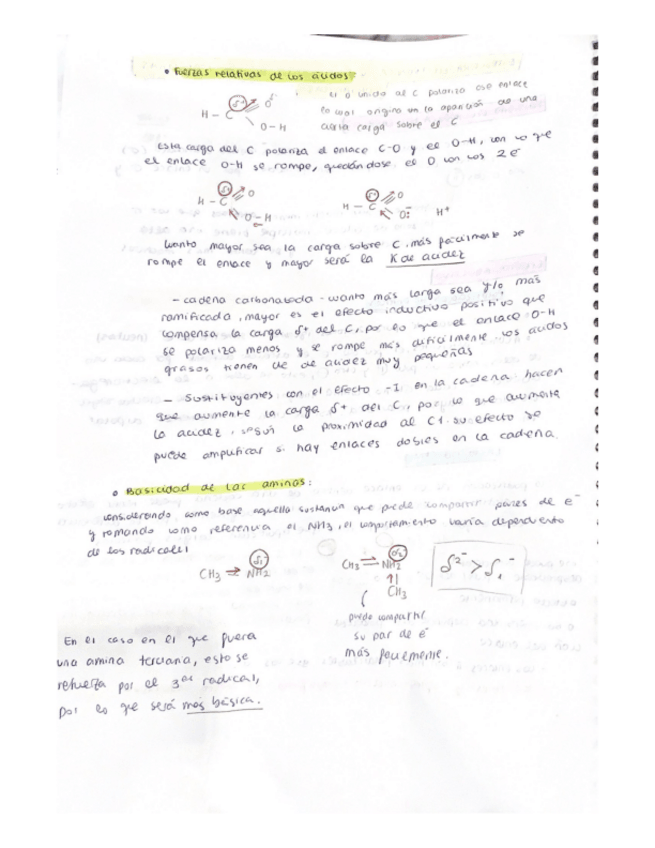 • Fuerzas relativas de los ácidos:
El O unido al C polariza ese enlace
lo cual origina en la aparición de una
cierta carga sobre el C
δ+ O δ-
H - C
O - H
Esta carga del C polariza el enlace C-O y el O-H, con lo que
el enlace O-H se rompe, quedándose el O con los 2 e-
δ+ O
H - C
O - H
δ+ O
H - C
O: H+
Cuanto mayor sea la carga sobre C, más fácilmente se
rompe el enlace y mayor será la K de acidez
- cadena carbonatada - cuanto más larga sea y/o más
ramificada, mayor es el efecto inductivo positivo que
compensa la carga δ+ del C, por lo que el enlace O-H
se polariza menos y se rompe más difícilmente los ácidos
grasos tienen de de acidez muy pequeñas
- Sustituyentes con el efecto -I en la cadena hacen
que aumente la carga δ+ del C, por lo que aumenta
la acidez, según la proximidad al C1. su efecto se
puede amplificar si hay enlaces dobles en la cadena
• Basicidad de las aminas:
considerando como base aquella sustancia que puede compartir pares de e-
y tomando como referencia el NH3, el comportamiento varía dependiento
de los radicales
CH3 → NH2 δ1-
CH3 → NH2 δ2-
CH3
δ2- > δ1-
puede compartir
su par de e-
más fácilmente.
En el caso en el que fuera
una amina terciaria, esto se
refuerza por el 3er radical,
por lo que será más básica.